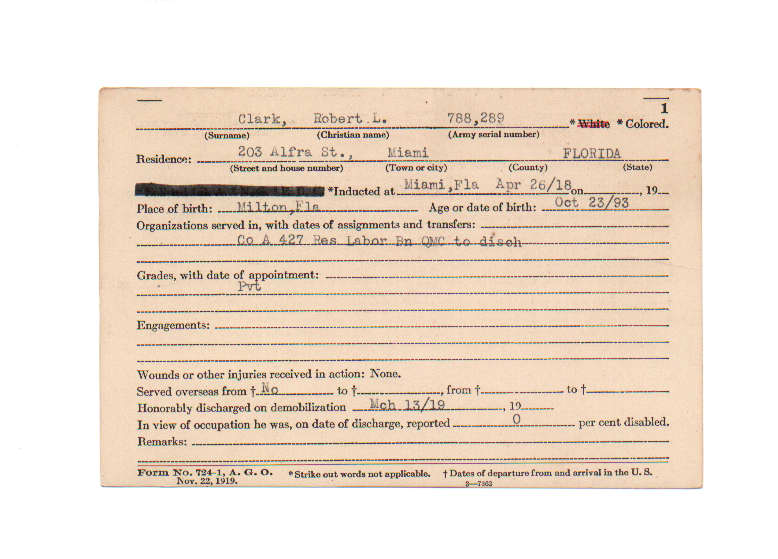 1
Clark, Robert L. 788,289 * White * Colored.
(Surname) (Christian name) (Army serial number)
203 Alfra St., Miami FLORIDA
Residence:
(Street and house number) (Town or city) (County) (State)
*Inducted at Miami,Fla Apr 26/18 on 19
Place of birth: Milton,Fla Age or date of birth: Oct 23/93
Organizations served in, with dates of assignments and transfers:
Co A 427 Res Labor Bn QMC to disch
Grades, with date of appointment:
Pvt
Engagements:
Wounds or other injuries received in action: None.
Served overseas from † No to †, from † to †
Honorably discharged on demobilization Mch 13/19, 19
In view of occupation he was, on date of discharge, reported 0 per cent disabled.
Remarks:
Form No. 724-1, A. G. O. *Strike out words not applicable. † Dates of departure from and arrival in the U. S.
Nov. 22, 1919. 3—7363